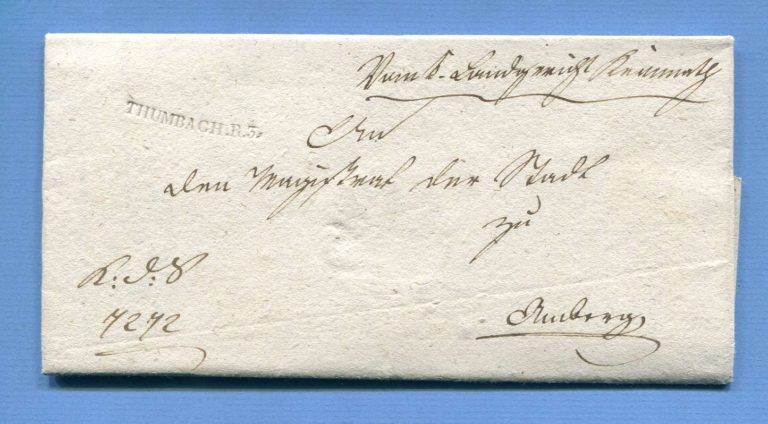 Vom k. Landgericht Kemnath
THUMBACH.R.3.
An
den Magistrat der Stadt
zu
R: d: S
7272
Amberg